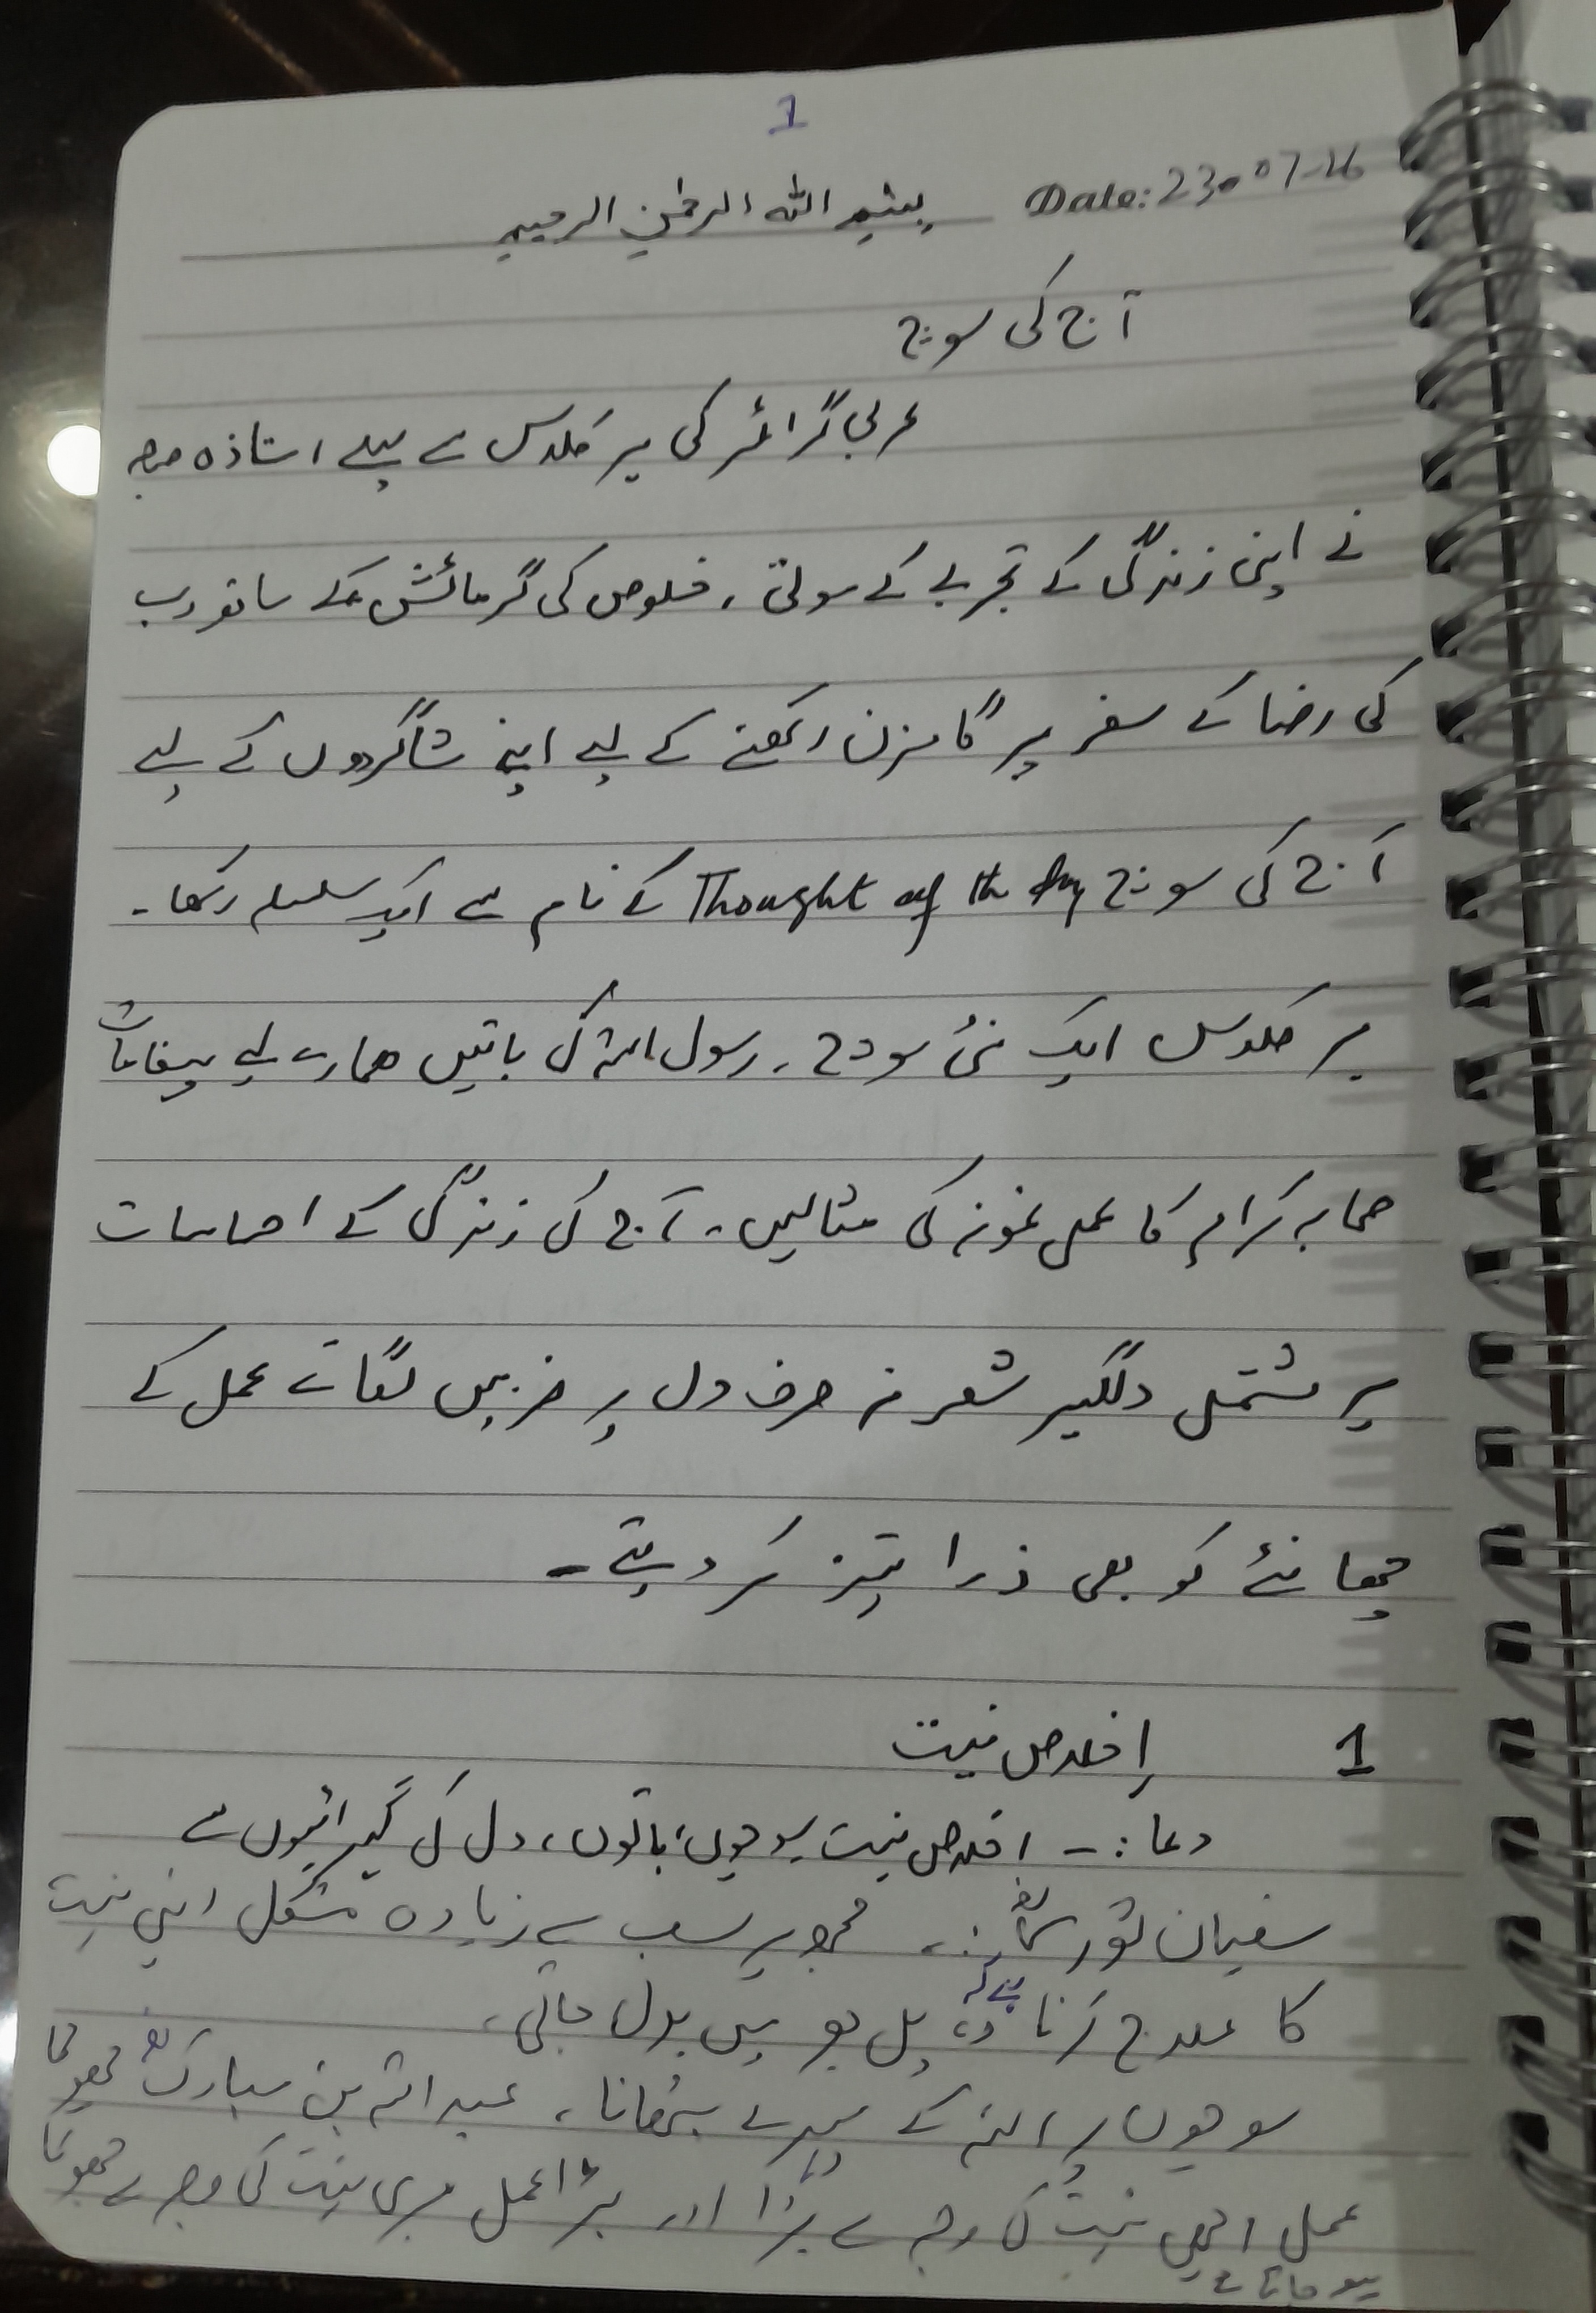 1
بِسْمِ اللہ الرحمٰنِ الرحیمِ Date: 23-07-26
آج کی سوچ
عربی گرائمر کی ہر کلاس سے پہلے استاذہ
نے اپنی زندگی کے تجربے کے موتی، خلوص کی گرمائش کے ساتھ رب
کی رضا کے سفر پر گامزن رکھنے کے لیے اپنے شاگردوں کے لیے
آج کی سوچ Thought of the day کے نام سے ایک سلسلہ رکھا۔
ہر کلاس ایک نئی سوچ، رسول اللہ کی باتیں ہمارے لیے پیغامات
صحابہ کرام کا عملی نمونہ کی مثالیں، آج کی زندگی کے احساسات
پر مشتمل دلگیر شعر نہ صرف دل پر ضربیں لگاتے عمل کے
کو بھی ذرا تیز کر دیتے۔
1 إخلاص نیت
دعا :- اخلاص نیت سوچوں، باتوں، دل کی گہرائیوں سے
سفیان ثوری :۔ مجھ پر سب سے زیادہ مشکل اپنی نیت
کا علاج کرنا ہے کہ وہ پل بھر میں بدل جاتی،
سوچوں پر اللہ کے پہرے بٹھانا، عبداللہ بن مبارک چھوٹا
عمل اچھی نیت کی وجہ سے بڑا اور بڑا عمل بری نیت کی وجہ سے چھوٹا
ہو جاتا ہے